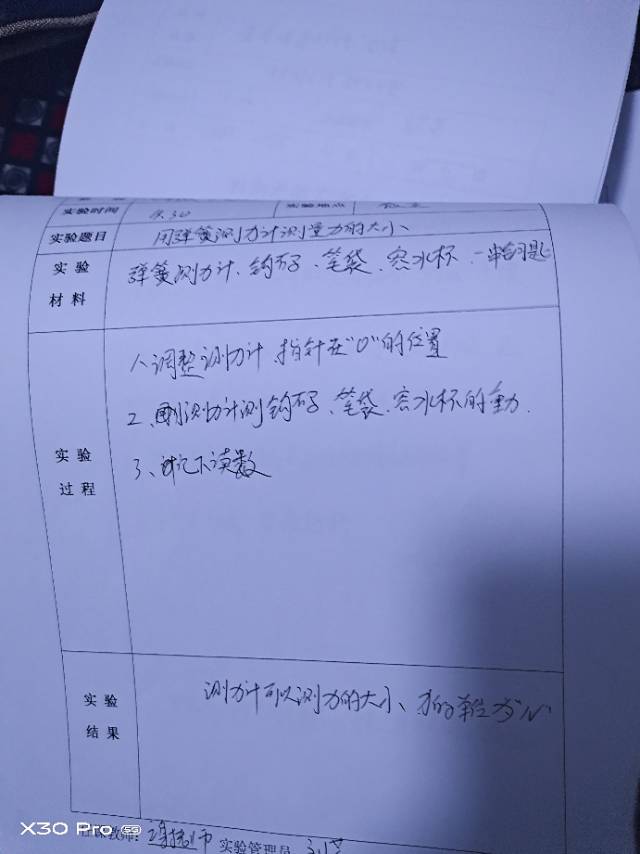 实验时间 9.30 实验地点
实验题目 用弹簧测力计测量力的大小
实验材料 弹簧测力计、钩码、笔袋、空水杯、一串钥匙
实验过程
1、调整测力计 指针在"0"的位置
2、用测力计测钩码、笔袋、空水杯的重力.
3、记下读数
实验结果 测力计可以测力的大小、力的单位为"N"
任课教师: 实验管理员
X30 Pro 5G